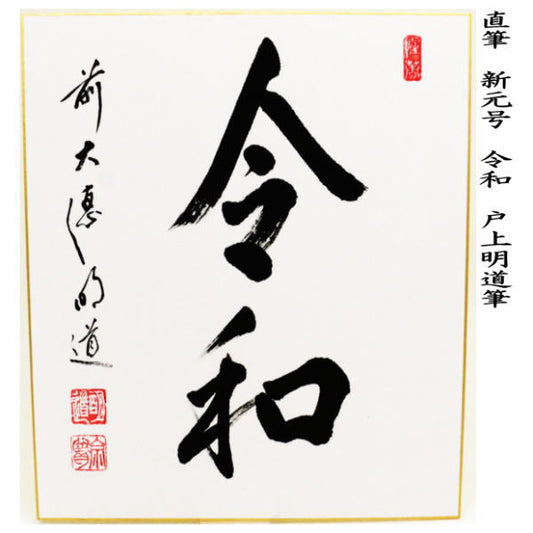 直筆 新元号 令和 戸上明道筆
令和
前大徳 明道